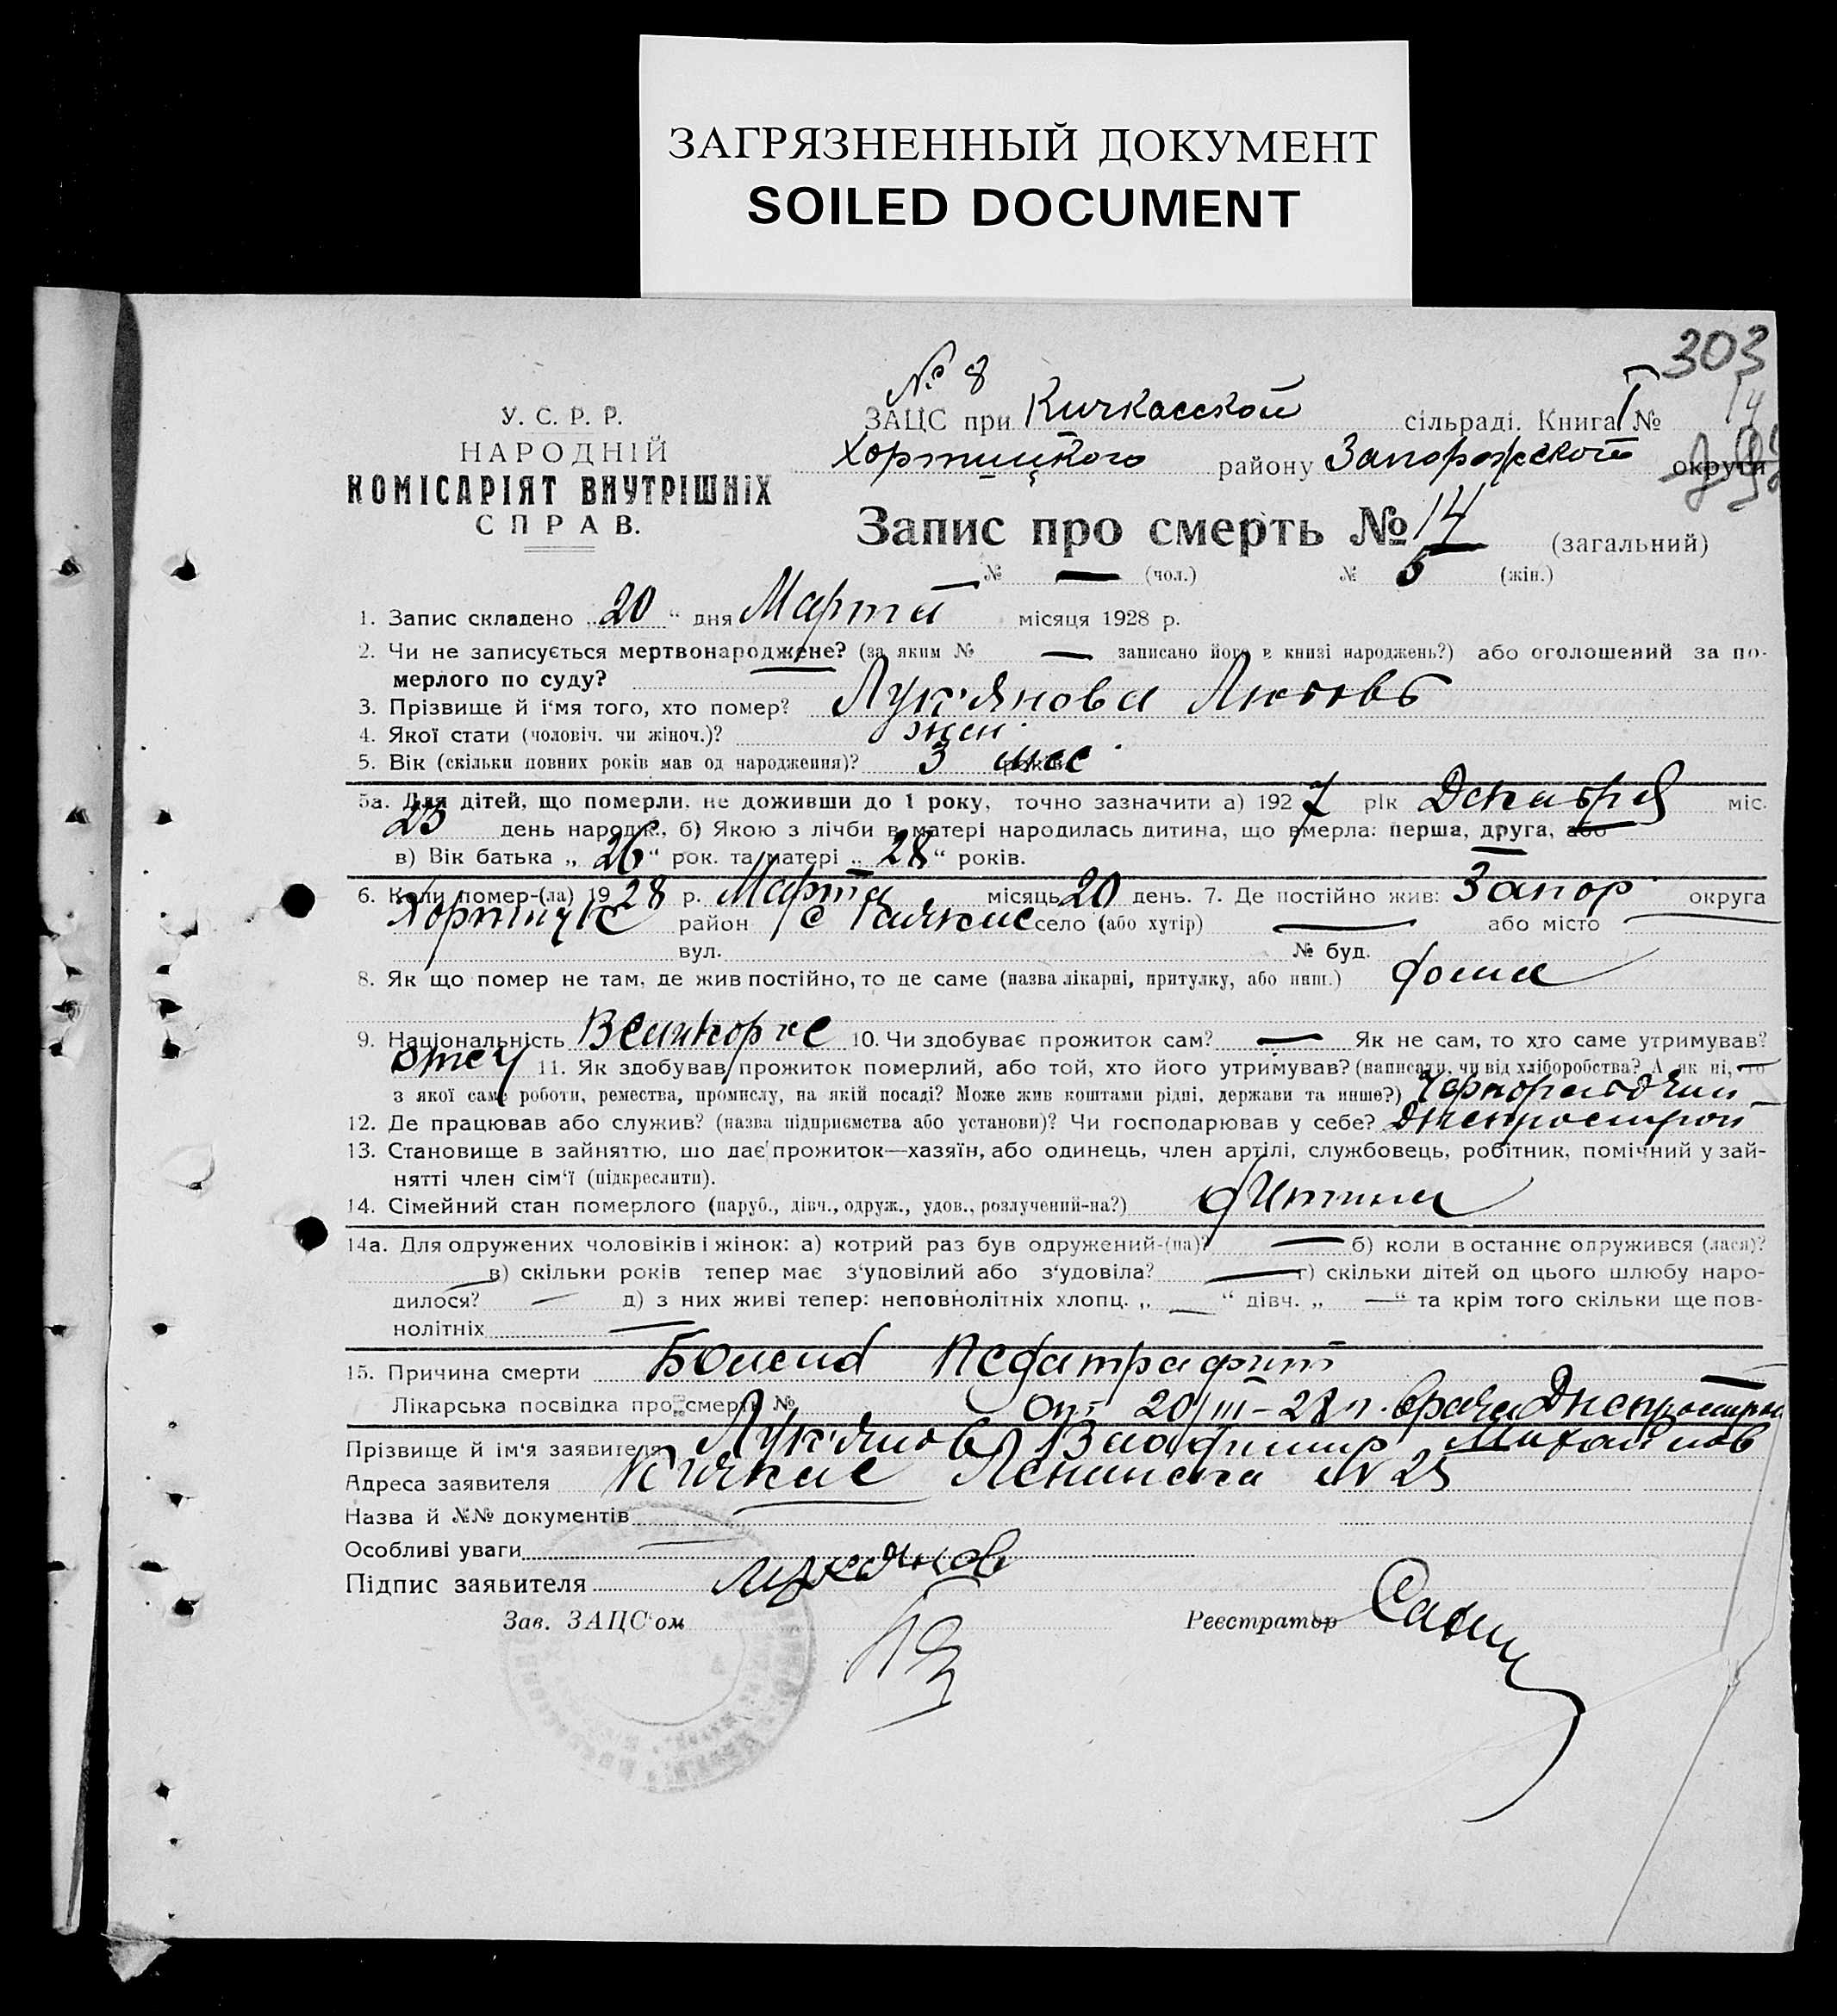 ЗАГРЯЗНЕННЫЙ ДОКУМЕНТ
SOILED DOCUMENT
303
№ 8
У. С. Р. Р.
НАРОДНІЙ
КОМІСАРІЯТ ВНУТРІШНІХ
СПРАВ.
ЗАЦС при Кичкасской сільраді. Книга I №
14
Хортицкого району Запорожской округи
Запис про смерть № 14 (загальний)
№ — (чол.) № 5 (жін.)
1. Запис складено „20“ дня Марта місяця 1928 р.
2. Чи не записується мертвонароджене? (за яким № — записано його в книзі народжень?) або оголошений за по-
мерлого по суду?
3. Прізвище й і'мя того, хто помер? Лук'янова Любовь
4. Якої стати (чоловіч. чи жіноч.)? жен.
5. Вік (скільки повних років мав од народження)? 3 мес.
5а. Для дітей, що померли, не доживши до 1 року, точно зазначити а) 1927 рік Декабря міс.
23 день народж., б) Якою з лічби в матері народилась дитина, що вмерла: перша, друга, або
в) Вік батька „26“ рок. та матері „28“ років.
6. Коли помер-(ла) 1928 р. Марта місяць 20 день. 7. Де постійно жив: Запор. округа
Хортицк район с Кичкас село (або хутір) — або місто —
вул. № буд.
8. Як що помер не там, де жив постійно, то де саме (назва лікарні, притулку, або инш.) дома
9. Національність Великорос 10. Чи здобуває прожиток сам? — Як не сам, то хто саме утримував?
отец 11. Як здобував прожиток померлий, або той, хто його утримував? (написати, чи від хліборобства? А як ні, то
з якої саме роботи, ремества, промислу, на якій посаді? Може жив коштами рідні, держави та инше?) Чернорабочий
12. Де працював або служив? (назва підприємства або установи)? Чи господарював у себе? Днепрострой
13. Становище в зайняттю, що дає прожиток—хазяїн, або одинець, член артілі, службовець, робітник, помічний у зай-
нятті член сім'ї (підкреслити).
14. Сімейний стан померлого (паруб., дівч., одруж., удов., розлучений-на?) дитина
14а. Для одружених чоловіків і жінок: а) котрий раз був одружений-(на)? — б) коли востаннє одружився (лася)?
— в) скільки років тепер має з'удовілий або з'удовіла? — г) скільки дітей од цього шлюбу наро-
дилося? — д) з них живі тепер: неповнолітніх хлопц. „ — “ дівч. „ — “ та крім того скільки ще пов-
нолітніх —
15. Причина смерти Педатрафит
Лікарська посвідка про смерть № От 20/III-28 г. врача Днепростроя
Прізвище й ім'я заявителя Лук'янов Владимир Михайлов
Адреса заявителя Кичкас Ленинска № 25
Назва й №№ документів —
Особливі уваги —
Підпис заявителя Лукянов
Зав. ЗАЦС'ом Реєстратор